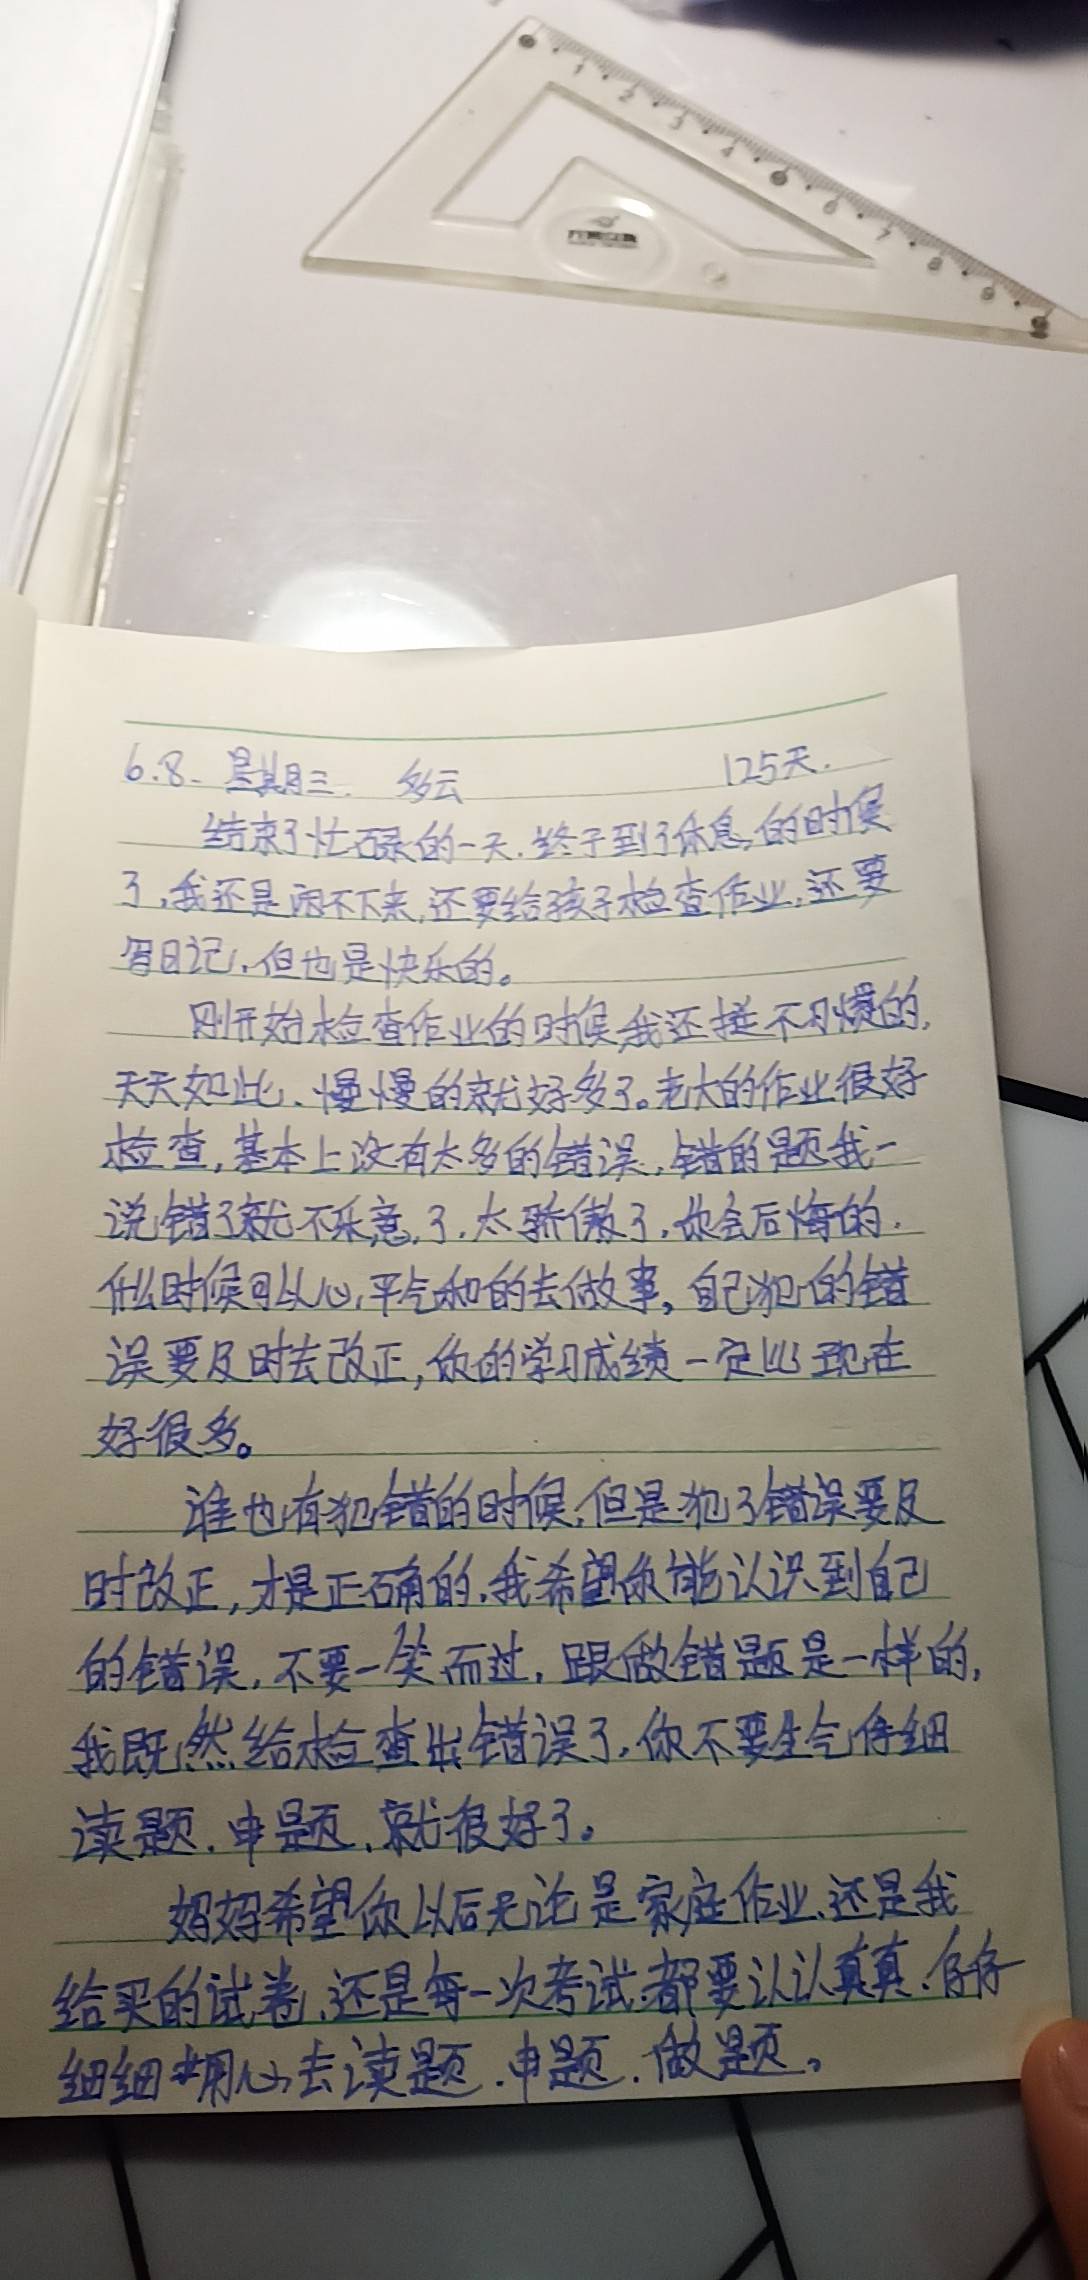 1 2 3 4 5 6 7 8 9
6.8. 星期三. 多云 125天.
结束了忙碌的一天.终于到了休息,的时候
了,我还是闲不下来,还要给孩子检查作业,还要
写日记,但也是快乐的。
刚开始检查作业的时候,我还挺不习惯的,
天天如此、慢慢的就好多了。老大的作业很好
检查,基本上没有太多的错误,错的题我一
说错了就不乐意,了,太骄傲了,你会后悔的.
什么时候可以心,平气和的去做事,自己犯的错
误要及时去改正,你的学习成绩一定比现在
好很多。
谁也有犯错的时候,但是犯了错误要及
时改正,才是正确的.我希望你能认识到自己
的错误,不要一笑而过,跟做错题是一样的,
我既然给检查出错误了,你不要生气仔细
读题.申题.就很好了。
妈妈希望你以后无论是家庭作业、还是我
给买的试卷、还是每一次考试.都要认认真真.仔仔
细细用心去读题.申题.做题。